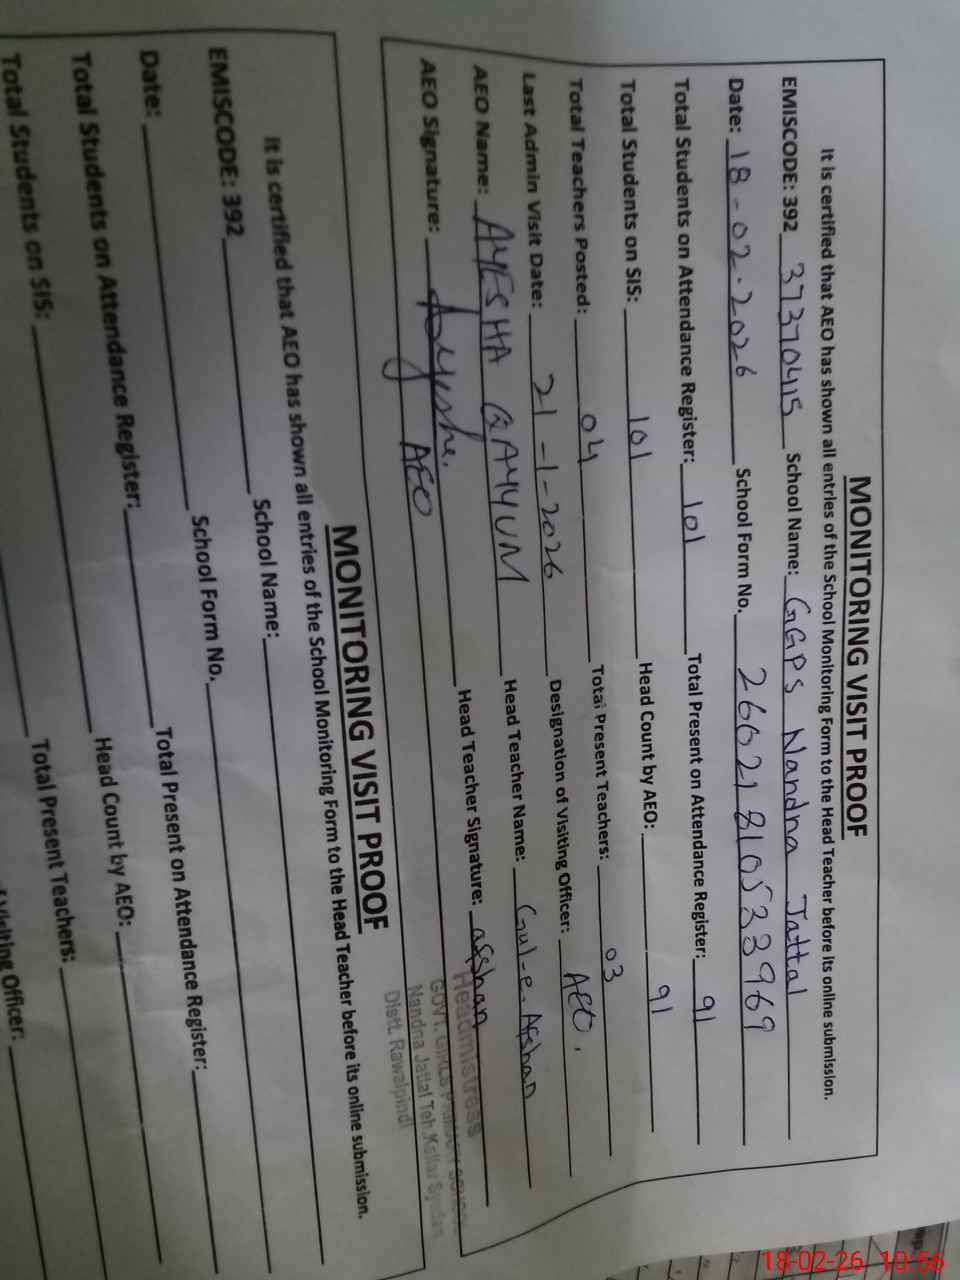 MONITORING VISIT PROOF
It is certified that AEO has shown all entries of the School Monitoring Form to the Head Teacher before its online submission.
EMISCODE: 392 37370415 School Name: GGPS Nandna Jattal
Date: 18-02-2026 School Form No. 26021810533969
Total Students on Attendance Register: 101 Total Present on Attendance Register: 91
Total Students on SIS: 101 Head Count by AEO: 91
Total Teachers Posted: 04 Total Present Teachers: 03
Last Admin Visit Date: 21-1-2026 Designation of Visiting Officer: AEO.
AEO Name: AYESHA QAYYUM Head Teacher Name: Gul-e-Afshan
AEO Signature: Ayesha. AEO Head Teacher Signature: afshan
Headmistress
GOVT. GIRLS PRIMARY SCHOOL
Nandna Jattal Teh Kallar Syedan
Distt. Rawalpindi
MONITORING VISIT PROOF
It is certified that AEO has shown all entries of the School Monitoring Form to the Head Teacher before its online submission.
EMISCODE: 392 School Name:
Date: School Form No.
Total Students on Attendance Register: Total Present on Attendance Register:
Total Students on SIS: Head Count by AEO:
Total Present Teachers:
Visiting Officer:
18-02-26 10:56